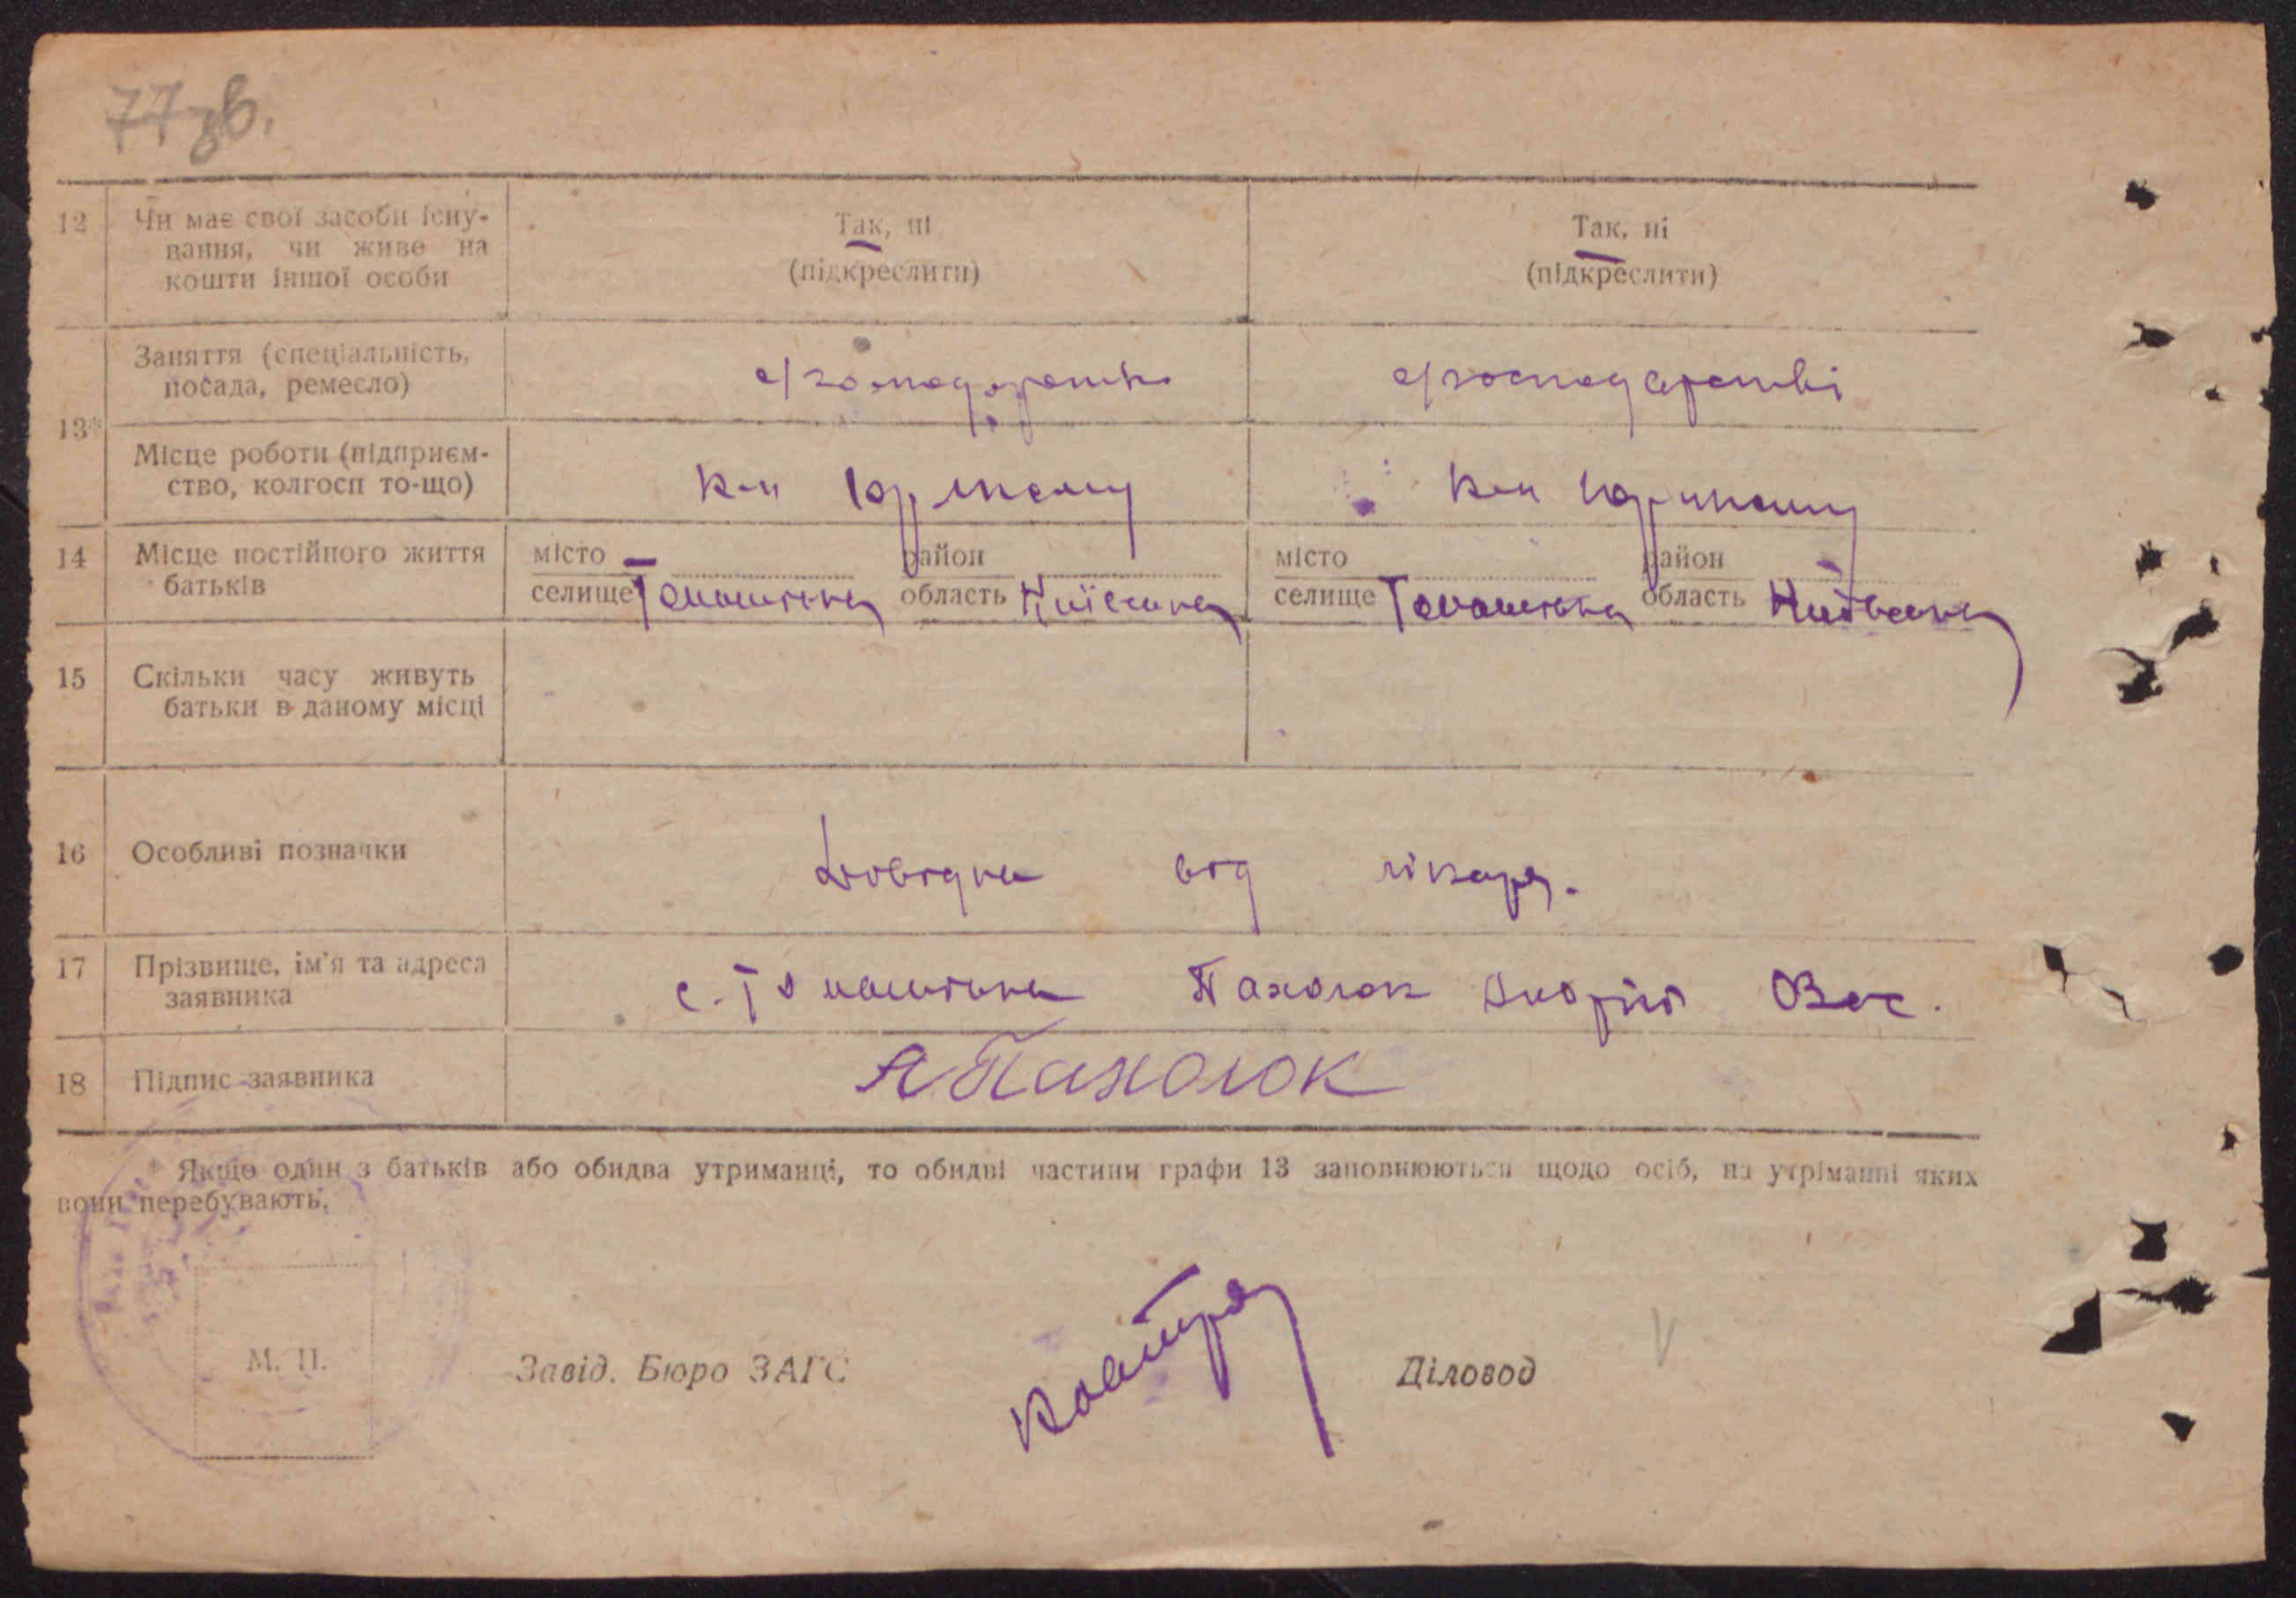 77 зв.
12
Чи має свої засоби існу-
вання, чи живе на
кошти іншої особи
Так, ні
(підкреслити)
Так, ні
(підкреслити)
13*
Заняття (спеціальність,
посада, ремесло)
с/господарстві
Місце роботи (підприєм-
ство, колгосп то-що)
14
Місце постійного життя
батьків
місто
селище Томашівка
район
область Київська
місто
селище Томашівка
район
область Київська
15
Скільки часу живуть
батьки в даному місці
16
Особливі позначки
Довідка від лікаря.
17
Прізвище, ім'я та адреса
заявника
с. Томашівка Пахолюк Андрій Вас.
18
Підпис заявника
А Пахолюк
Якщо один з батьків або обидва утриманці, то обидві частини графи 13 заповнюються щодо осіб, на утріманні яких
вони перебувають.
М. П.
Завід. Бюро ЗАГС
Діловод